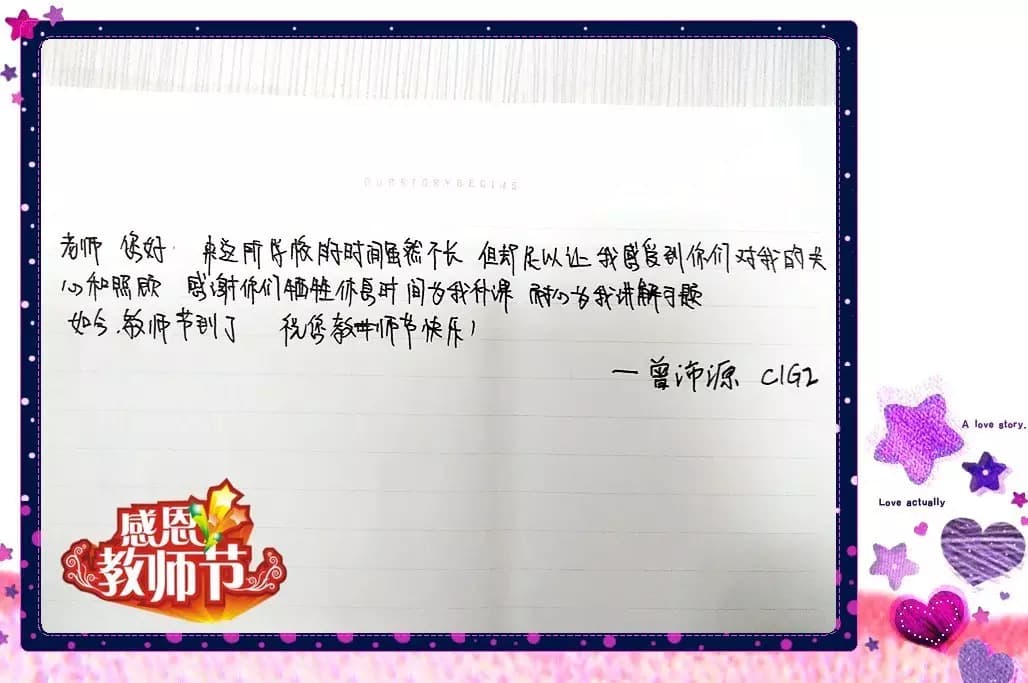 OURSTORYBEGINS
老师 您好. 来这所学校的时间虽然不长 但却足以让我感受到你们对我的关
心和照顾 感谢你们牺牲休息时间为我补课 耐心为我讲解习题
如今,教师节到了 祝您教师节快乐!
—曾沛源 C1G2
感恩
教师节
A love story.
Love actually